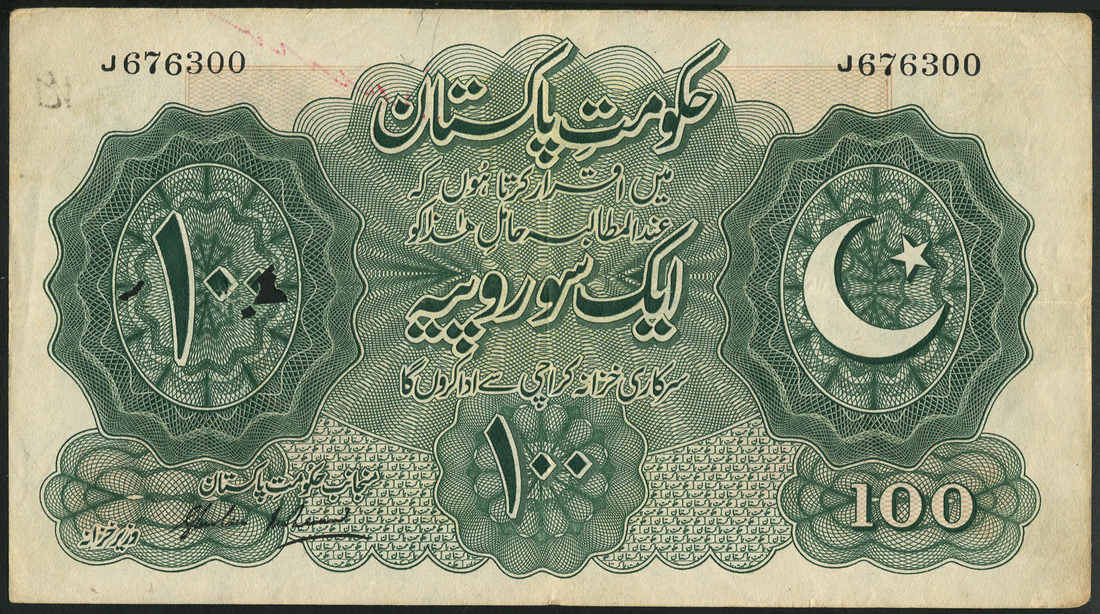 J676300
J676300
حکومتِ پاکستان
میں اقرار کرتا ہُوں کہ
عندالمطالبہ حاملِ ھٰذا کو
ایک سو روپیہ
سرکاری خزانہ کراچی سے ادا کروں گا
۱۰۰
۱۰۰
منجانب حکومت پاکستان
وزیر خزانہ
100